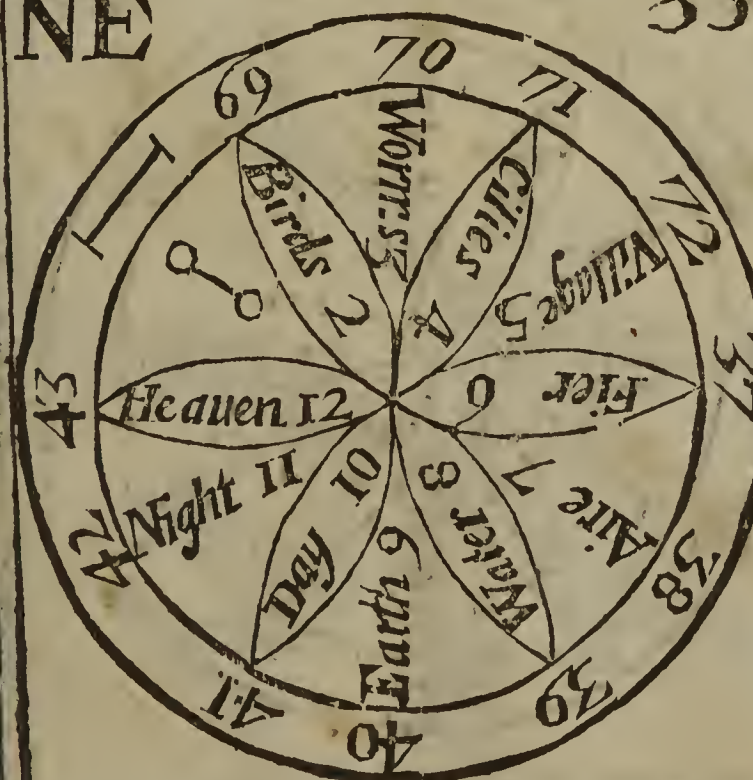 NE
I
69
70
71
72
37
38
39
40
41
42
43
Birds 2
Worms 3
Cities 4
Village 5
Fier 6
Aire 7
Water 8
Earth 9
Day 10
Night 11
Heauen 12